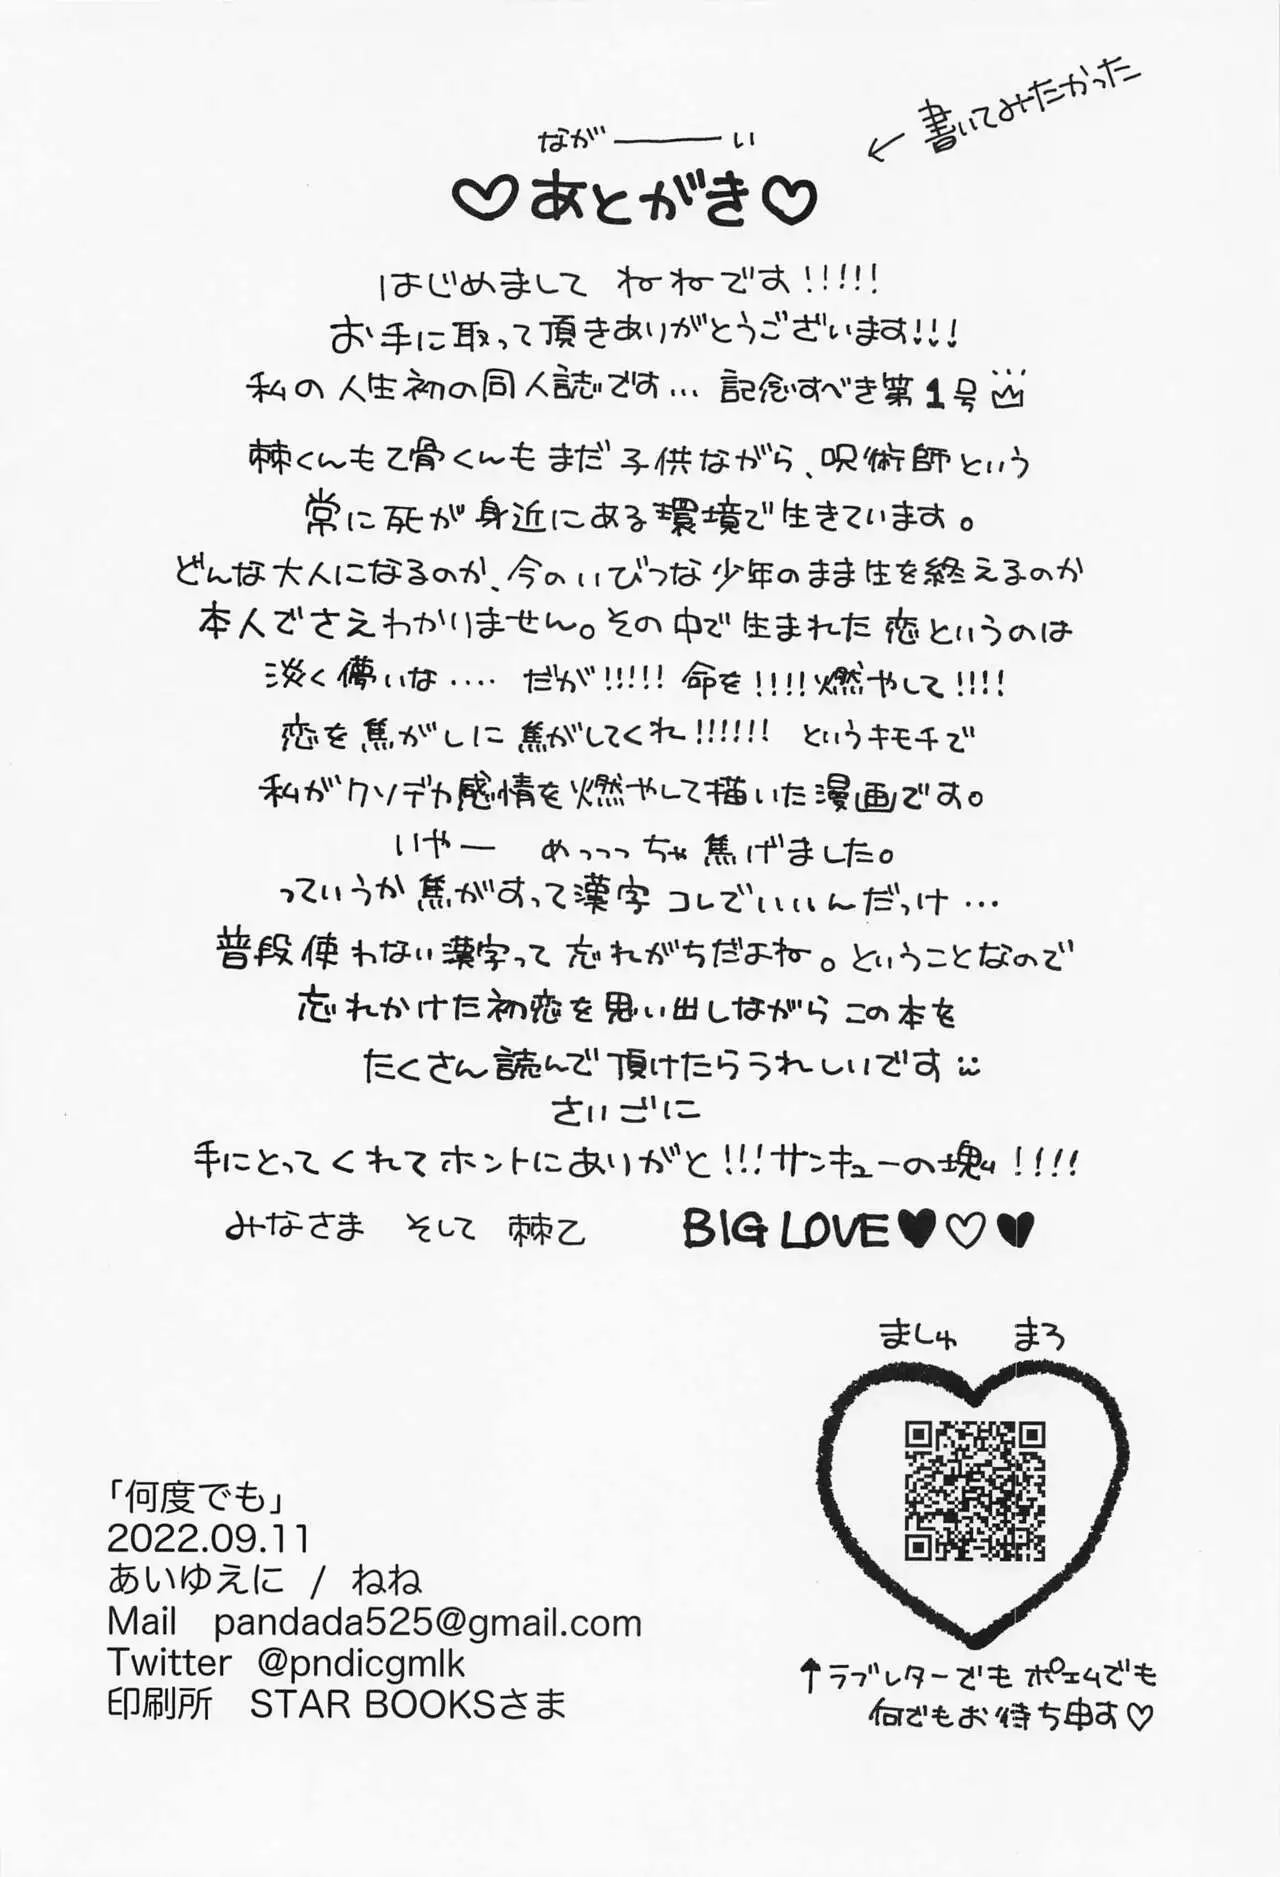 ← 書いてみたかった
なが――い
♡あとがき♡
はじめまして ねねです!!!!!
お手に取って頂きありがとうございます!!!
私の人生初の同人誌です… 記念すべき第1号
棘くんも乙骨くんもまだ子供ながら、呪術師という
常に死が身近にある環境で生きています。
どんな大人になるのか、今のいびつな少年のまま生を終えるのか
本人でさえわかりません。その中で生まれた恋というのは
淡く儚いな‥‥ だが!!!!! 命を!!!!燃やして!!!!
恋を焦がしに焦がしてくれ!!!!!! というキモチで
私がクソデカ感情を燃やして描いた漫画です。
いやー めっっっちゃ焦げました。
っていうか焦がすって漢字 コレでいいんだっけ…
普段使わない漢字って忘れがちだよね。ということなので
忘れかけた初恋を思い出しながらこの本を
たくさん読んで頂けたらうれしいです
さいごに
手にとってくれてホントにありがと!!!サンキューの塊!!!!
みなさま そして 棘乙 BIG LOVE♥♡♥
ましゅ まろ
「何度でも」
2022.09.11
あいゆえに / ねね
Mail pandada525@gmail.com
Twitter @pndicgmlk
印刷所 STAR BOOKSさま
↑ラブレターでもポエムでも
何でもお待ち申す♡